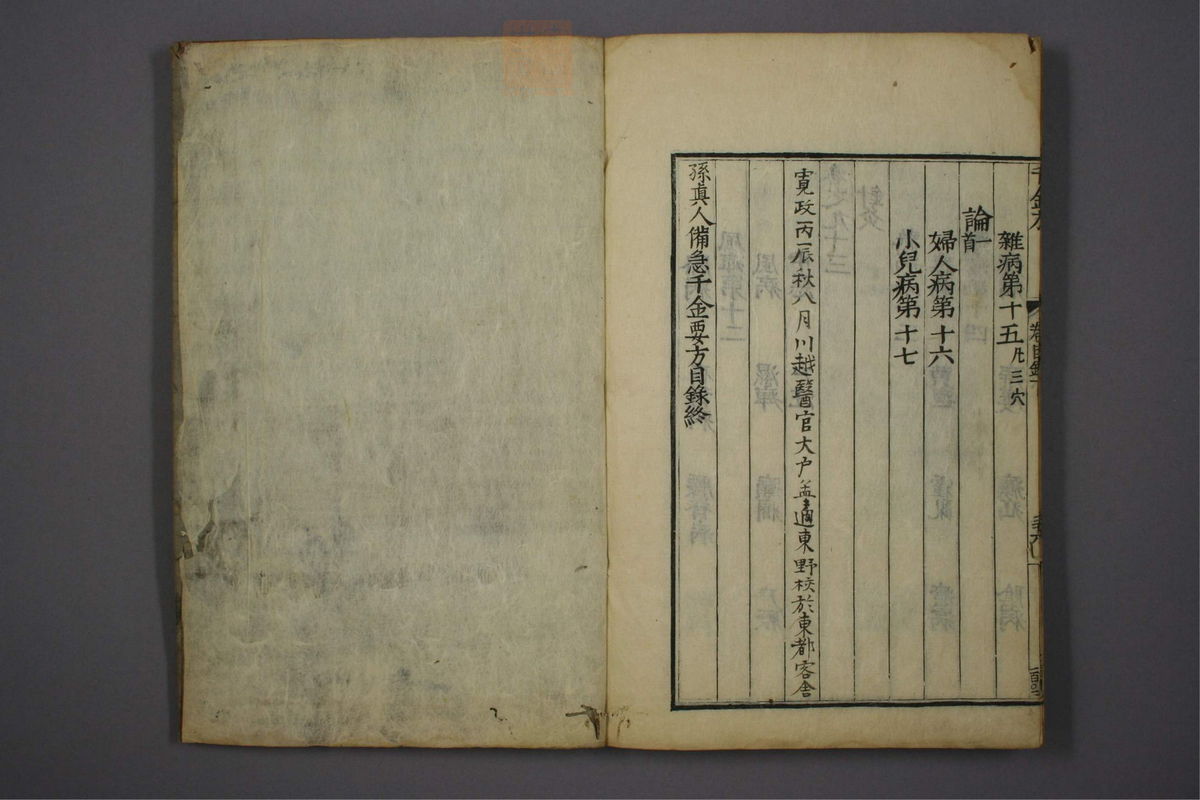 雜病第十五 凡三穴
論一首
婦人病第十六
小兒病第十七
寛政丙辰秋八月川越醫官大户孟適東野校於東都客舎
孫真人備急千金要方目錄終